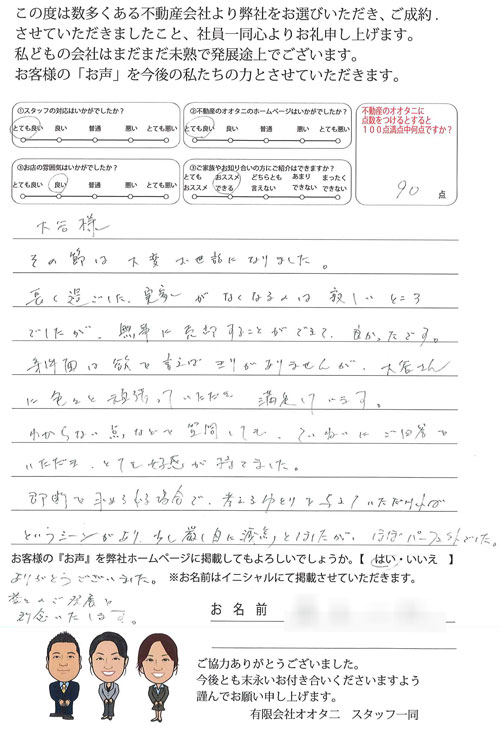 この度は数多くある不動産会社より弊社をお選びいただき、ご成約.
させていただきましたこと、社員一同心よりお礼申し上げます。
私どもの会社はまだまだ未熟で発展途上でございます。
お客様の「お声」を今後の私たちの力とさせていただきます。
①スタッフの対応はいかがでしたか？
とても良い 良い 普通 悪い とても悪い
②不動産のオオタニのホームページはいかがでしたか？
とても良い 良い 普通 悪い とても悪い
③お店の雰囲気はいかがでしたか？
とても良い 良い 普通 悪い とても悪い
⑤ご家族やお知り合いの方にご紹介はできますか？
とても オススメ どちらとも あまり まったく
オススメ できる 言えない できない できない
不動産のオオタニに
点数をつけるとすると
100点満点中何点ですか？
90 点
大谷様
その節は大変お世話になりました。
長く過ごした実家がなくなるのは寂しいところ
でしたが、無事に売却することができて、良かったです。
条件面は欲を言えばキリがありませんが、大谷さん
に色々と頑張っていただき満足しています。
わからない点などを質問しても、ていねいにご回答を
いただき、とても好感が持てました。
即断を求める場合で、考えるゆとりを与えていただければ
というシーンがあり、少し厳し目に減点としましたが、ほぼパーフェクトでした。
お客様の『お声』を弊社ホームページに掲載してもよろしいでしょうか。【 はい・いいえ 】
ありがとうございました。
※お名前はイニシャルにて掲載させていただきます。
益々のご発展を
お祈りいたします。
お 名 前
ご協力ありがとうございました。
今後とも末永いお付き合いくださいますよう
謹んでお願い申し上げます。
有限会社オオタニ スタッフ一同